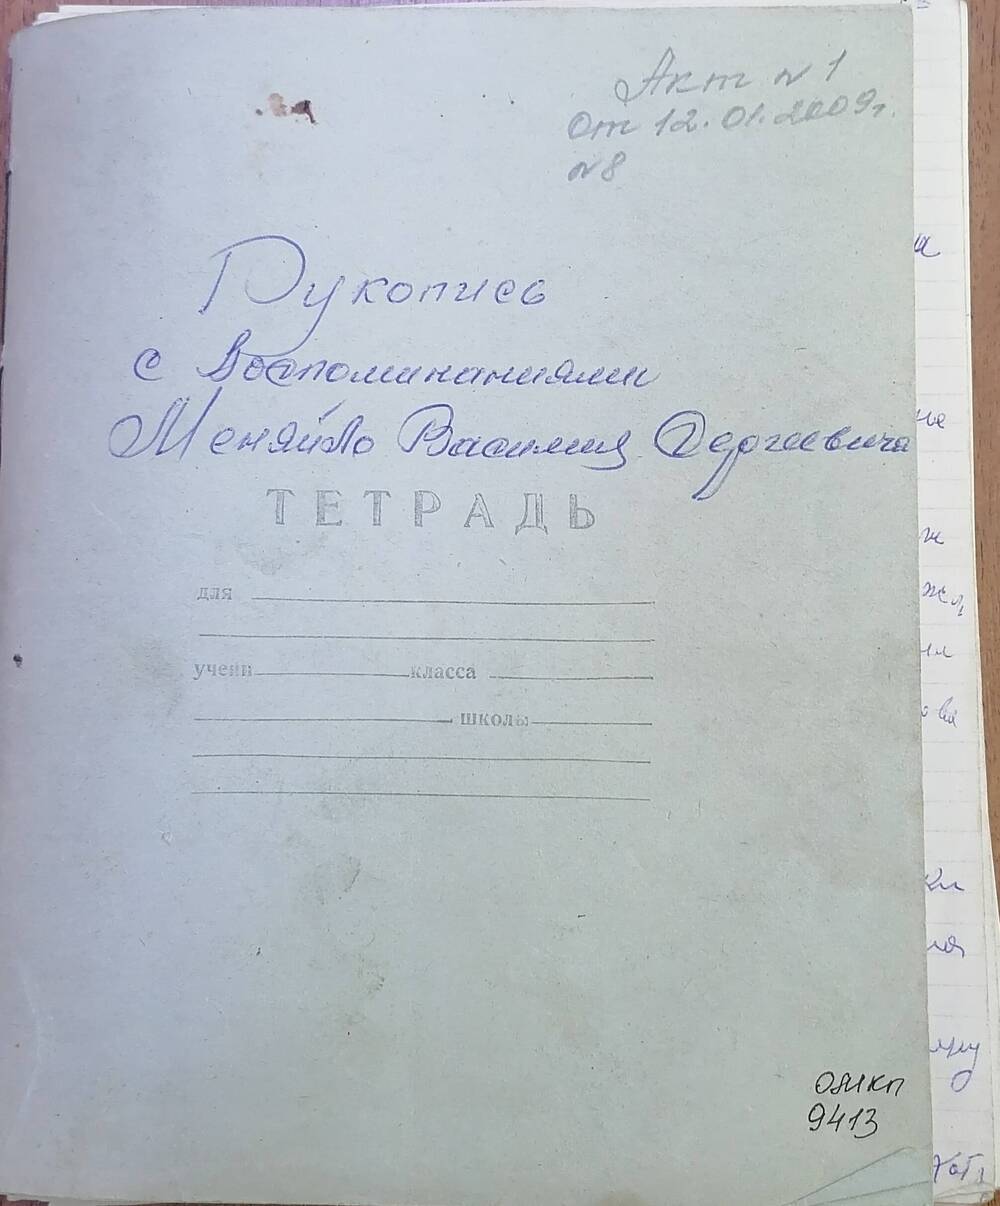 Акт № 1
От 12.01.2009г.
№ 8
Рукопись
с Воспоминаниями
Меняйло Василия Сергеевича
ТЕТРАДЬ
для
учени класса
школы
9413